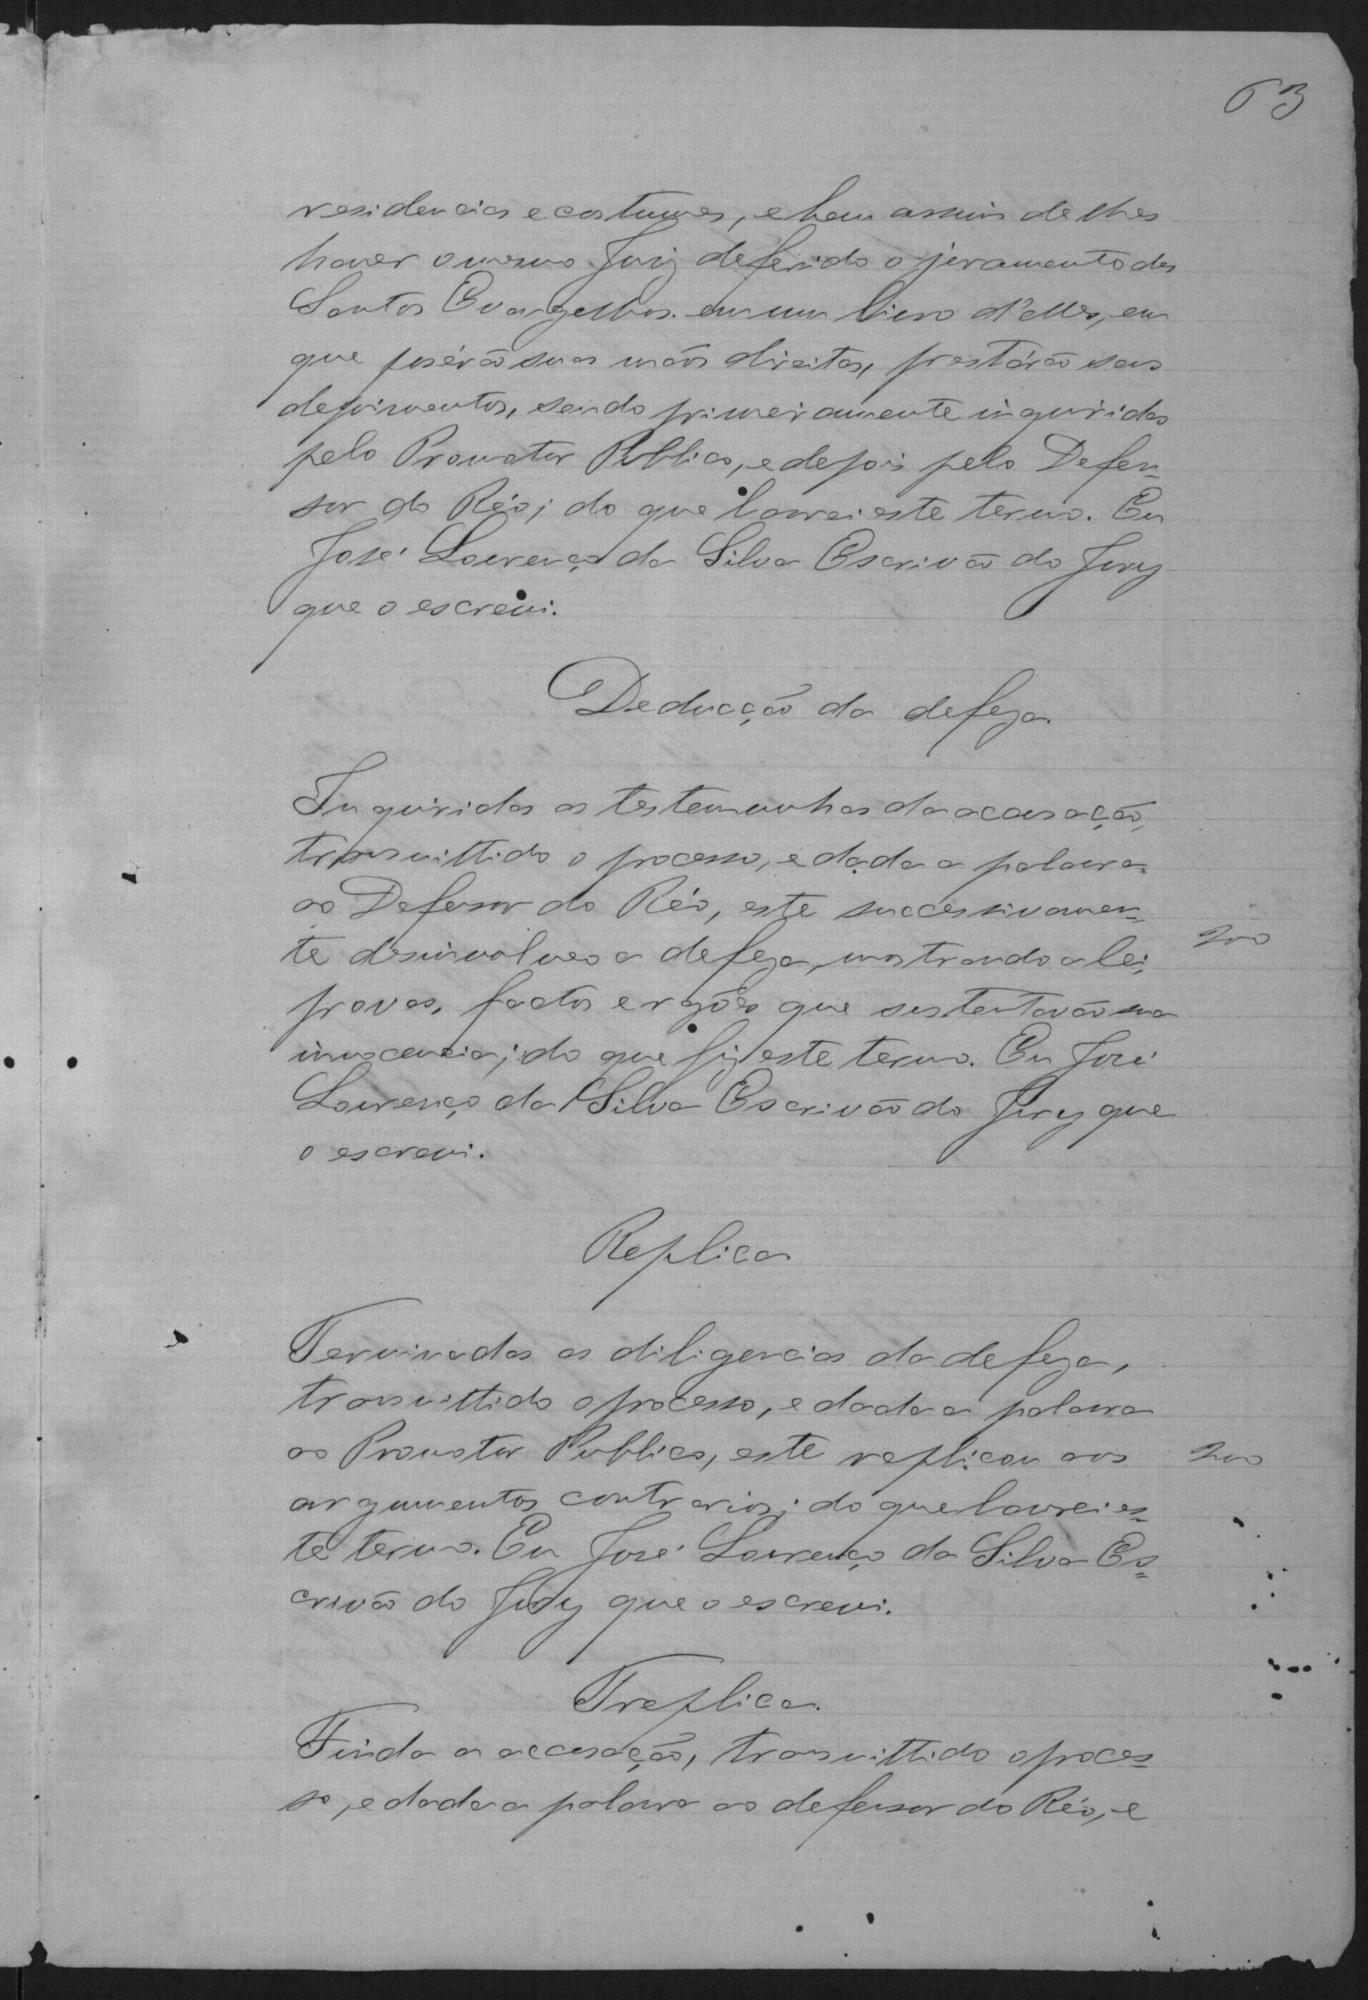 63
residencias e costumes, e bem assim de lhes
haver o mesmo Juiz deferido o juramento dos
Santos Evangelhos em um livro d'elles, em
que poserão suas mãos direitas, prestárão seus
depoimentos, sendo primeiramente inquiridas
pelo Promotor Publico, e depois pelo Defen-
sor do Réo; do que lavrei este termo. Eu
José Lourenço da Silva Escrivão do Jury
que o escrevi.
Deducção da defeza.
Inquiridas as testemunhas da acusação,
transmittido o processo, e dada a palavra
ao Defensor do Réo, este successivamen-
te desinvolveo a defeza, mostrando a lei,
200
provas, factos e rasões que sustentavão sua
innocencia; do que fiz este termo. Eu José
Lourenço da Silva Escrivão do Jury que
o escrevi.
Replica
Terminadas as diligencias da defeza,
transmittido o processo, e dada a palavra
ao Promotor Publico, este replicou aos
200
argumentos contrarios; do que lavrei es-
te termo. Eu José Lourenço da Silva Es-
crivão do Jury que o escrevi.
Treplica.
Finda a accusação, transmittido o proces-
so, e dada a palavra ao defensor do Réo, e